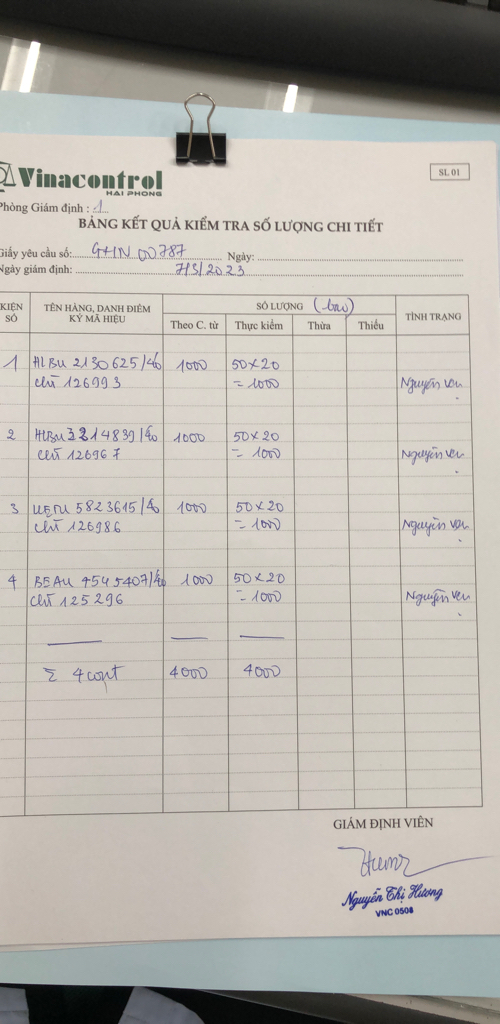 Vinacontrol
HAI PHONG
SL 01
Phòng Giám định : 1
BẢNG KẾT QUẢ KIỂM TRA SỐ LƯỢNG CHI TIẾT
Giấy yêu cầu số: GHN 00787 Ngày:
Ngày giám định: 7/3/2023
KIỆN SỐ TÊN HÀNG, DANH ĐIỂM KÝ MÃ HIỆU SỐ LƯỢNG (bao) TÌNH TRẠNG
Theo C. từ Thực kiểm Thừa Thiếu
1 HLBU 2130625/40 1000 50×20
chì 126993 = 1000 Nguyên vẹn
2 HLBU 3214839/40 1000 50×20
chì 126967 = 1000 Nguyên vẹn
3 UETU 5823615/40 1000 50×20
chì 126986 = 1000 Nguyên vẹn
4 BEAU 4545407/40 1000 50×20
chì 125296 = 1000 Nguyên vẹn
Σ 4 cont 4000 4000
GIÁM ĐỊNH VIÊN
Nguyễn Thị Hương
VNC 0508